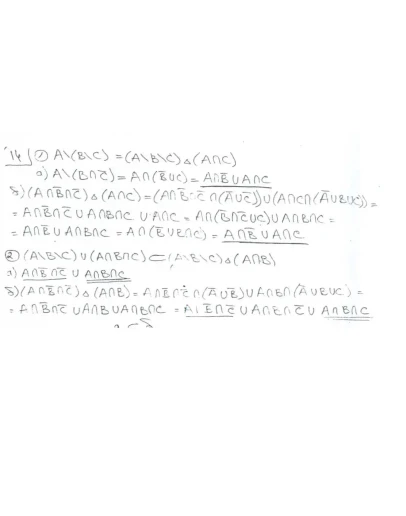 14) ① A\(B\C) = (A\B\C) △ (A∩C)
а) A\(B∩C̅) = A∩(B̅∪C) = A∩B̅∪A∩C
б) (A∩B̅∩C̅) △ (A∩C) = (A∩B̅∩C̅∩(A̅∪C̅))∪(A∩C∩(A̅∪B∪C)) =
= A∩B̅∩C̅∪A∩B∩C∪A∩C = A∩(B̅∩C̅∪C)∪A∩B∩C =
= A∩B̅∪A∩B∩C = A∩(B̅∪B∩C) = A∩B̅∪A∩C
② (A\B\C)∪(A∩B∩C) ⊂ (A\B\C) △ (A∩B)
а) A∩B̅∩C̅ ∪ A∩B∩C
б) (A∩B̅∩C̅) △ (A∩B) = A∩B̅∩C̅∩(A̅∪B̅)∪A∩B∩(A̅∪B∪C) =
= A∩B̅∩C̅∪A∩B∪A∩B∩C = A∩B̅∩C̅∪A∩B∩C̅∪A∩B∩C